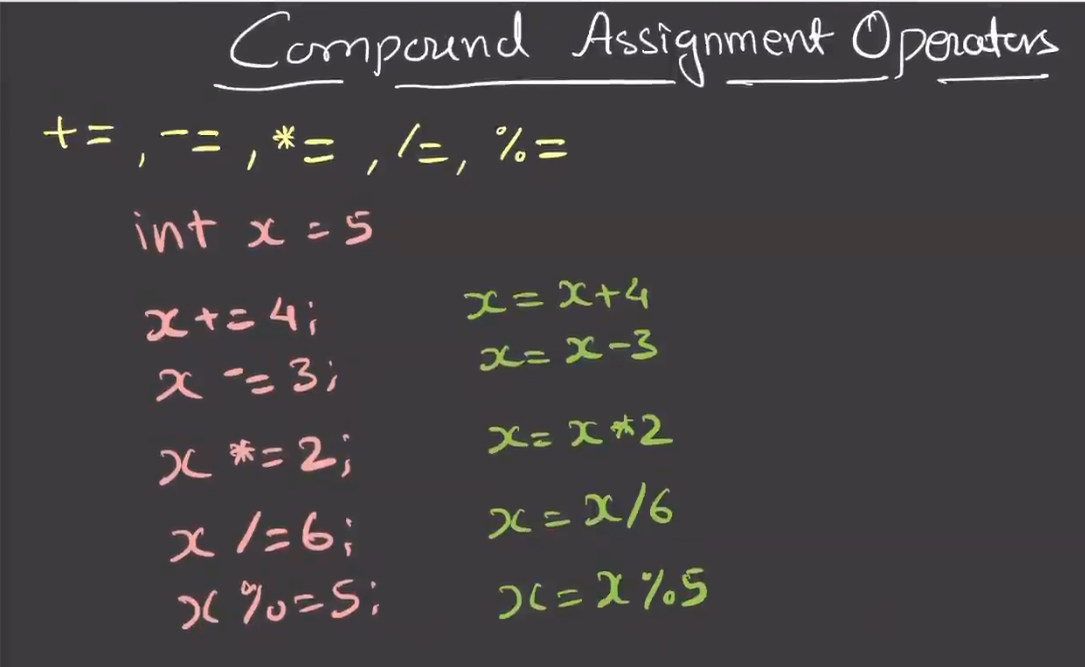 Compound Assignment Operators
+= , -= , *= , /= , %=
int x = 5
x += 4; x = x+4
x -= 3; x = x-3
x *= 2; x = x*2
x /= 6; x = x/6
x %= 5; x = x%5